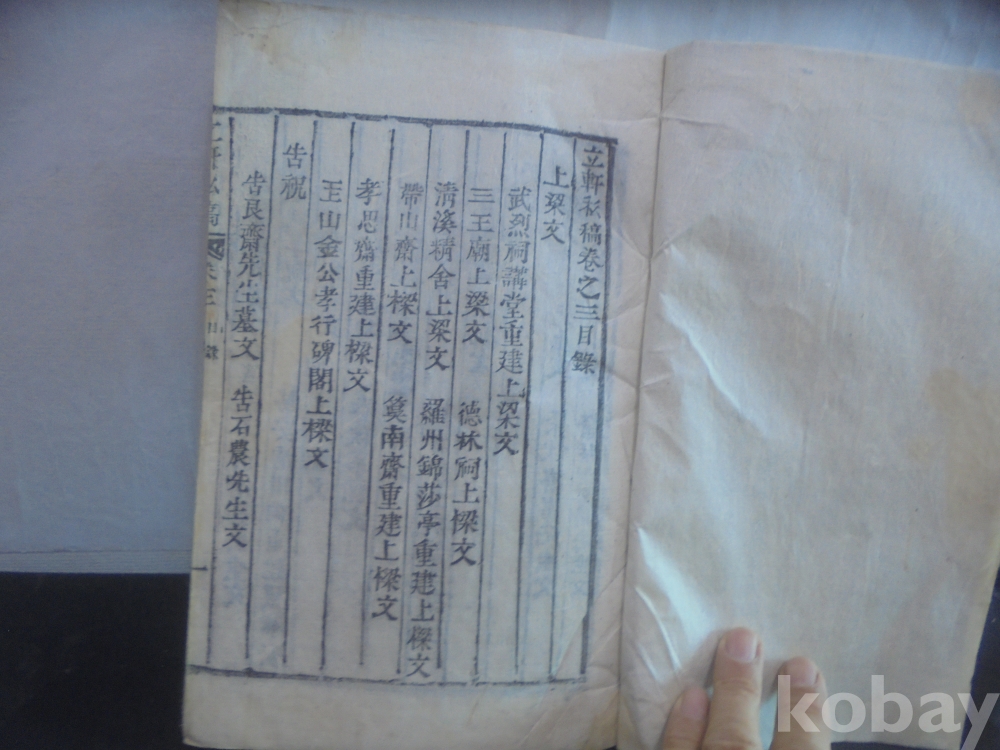 立軒私稿卷之三目錄
上梁文
武烈祠講堂重建上梁文
三王廟上梁文 德林祠上樑文
淸溪精舍上梁文 羅州錦莎亭重建上樑文
帶山齋上樑文 箕南齋重建上樑文
孝思齋重建上樑文
玉山金公孝行碑閣上樑文
告祝
告艮齋先生墓文 告石農先生文
卷三 目錄
一
kobay